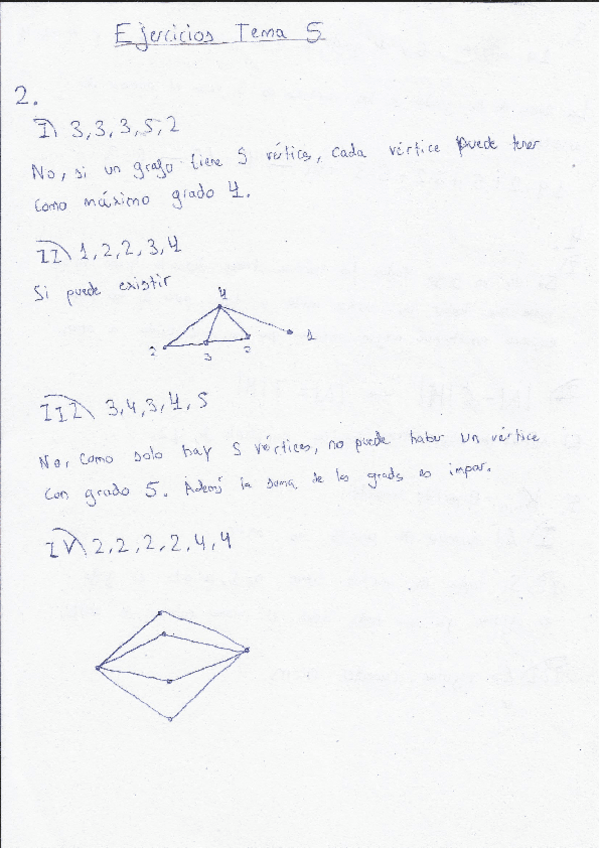 Ejercicios Tema 5
2.
I) 3,3,3,5,2
No, si un grafo tiene 5 vértices, cada vértice puede tener
como máximo grado 4.
II) 1,2,2,3,4
Si puede existir
4
2 3 2 1
III) 3,4,3,4,5
No, como solo hay 5 vértices, no puede haber un vértice
con grado 5. Ademś la suma de los grads es impar.
IV) 2,2,2,2,4,4